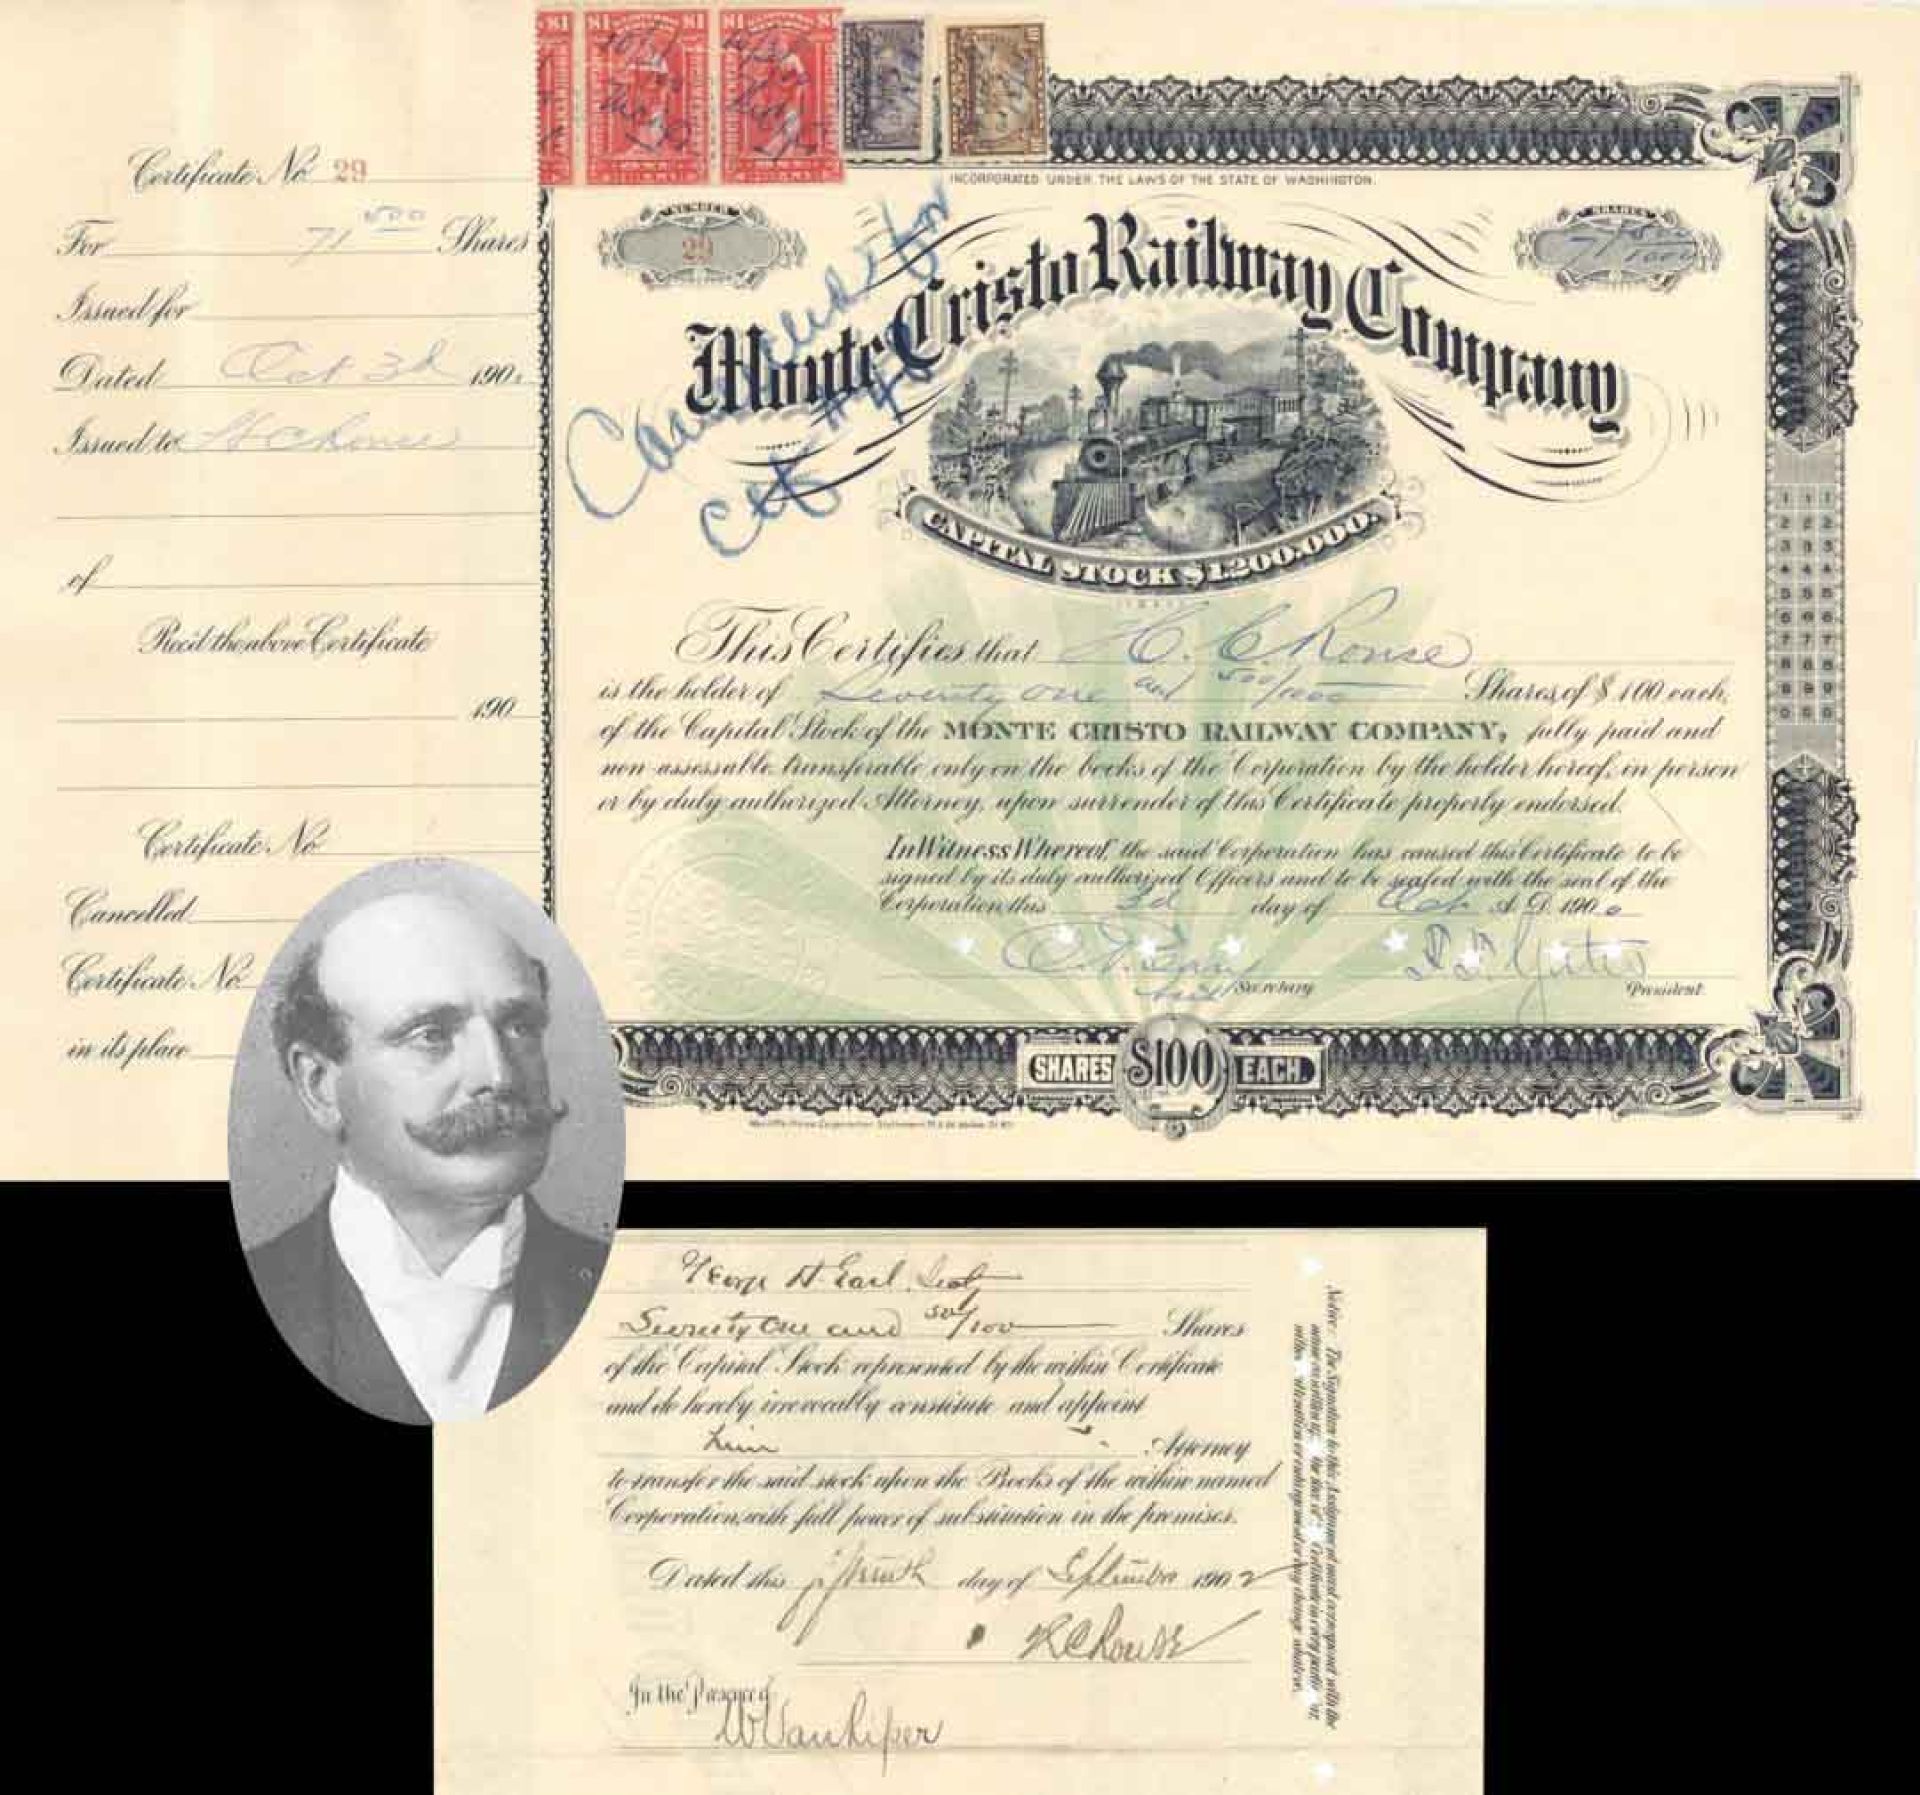 Certificate No. 29
For 71 500 Shares
Issued for
Dated Oct 3d 190
Issued to H C Rouse
of
Rec'd the above Certificate
190
Certificate No.
Cancelled
Certificate No.
in its place
$1 $1 $1
INCORPORATED UNDER THE LAWS OF THE STATE OF WASHINGTON.
NUMBER
29
SHARES
71 500/1000
Monte Cristo Railway Company
Cancelled & for
Ctf #40
CAPITAL STOCK $1,200,000.
This Certifies that H. C. Rouse
is the holder of Seventy one and 500/1000 Shares of $100 each,
of the Capital Stock of the MONTE CRISTO RAILWAY COMPANY, fully paid and
non-assessable transferable only on the books of the Corporation by the holder hereof, in person
or by duly authorized Attorney, upon surrender of this Certificate properly endorsed.
In Witness Whereof, the said Corporation has caused this Certificate to be
signed by its duly authorized Officers and to be sealed with the seal of the
Corporation this 3d day of Oct A. D. 1900
Secretary
President
SHARES $100 EACH.
1 1 1
2 2 2
3 3 3
4 4 4
5 5 5
6 6 6
7 7 7
8 8 8
9 9 9
0 0 0
George H Earl
Seventy One and 50/100 Shares
of the Capital Stock represented by the within Certificate
and do hereby irrevocably constitute and appoint
him Attorney
to transfer the said stock upon the Books of the within named
Corporation, with full power of substitution in the premises.
Dated this fifteenth day of September 1902
H C Rouse
In the Presence of
W Van Riper
Notice: The Signature to this Assignment must correspond with the
name as written